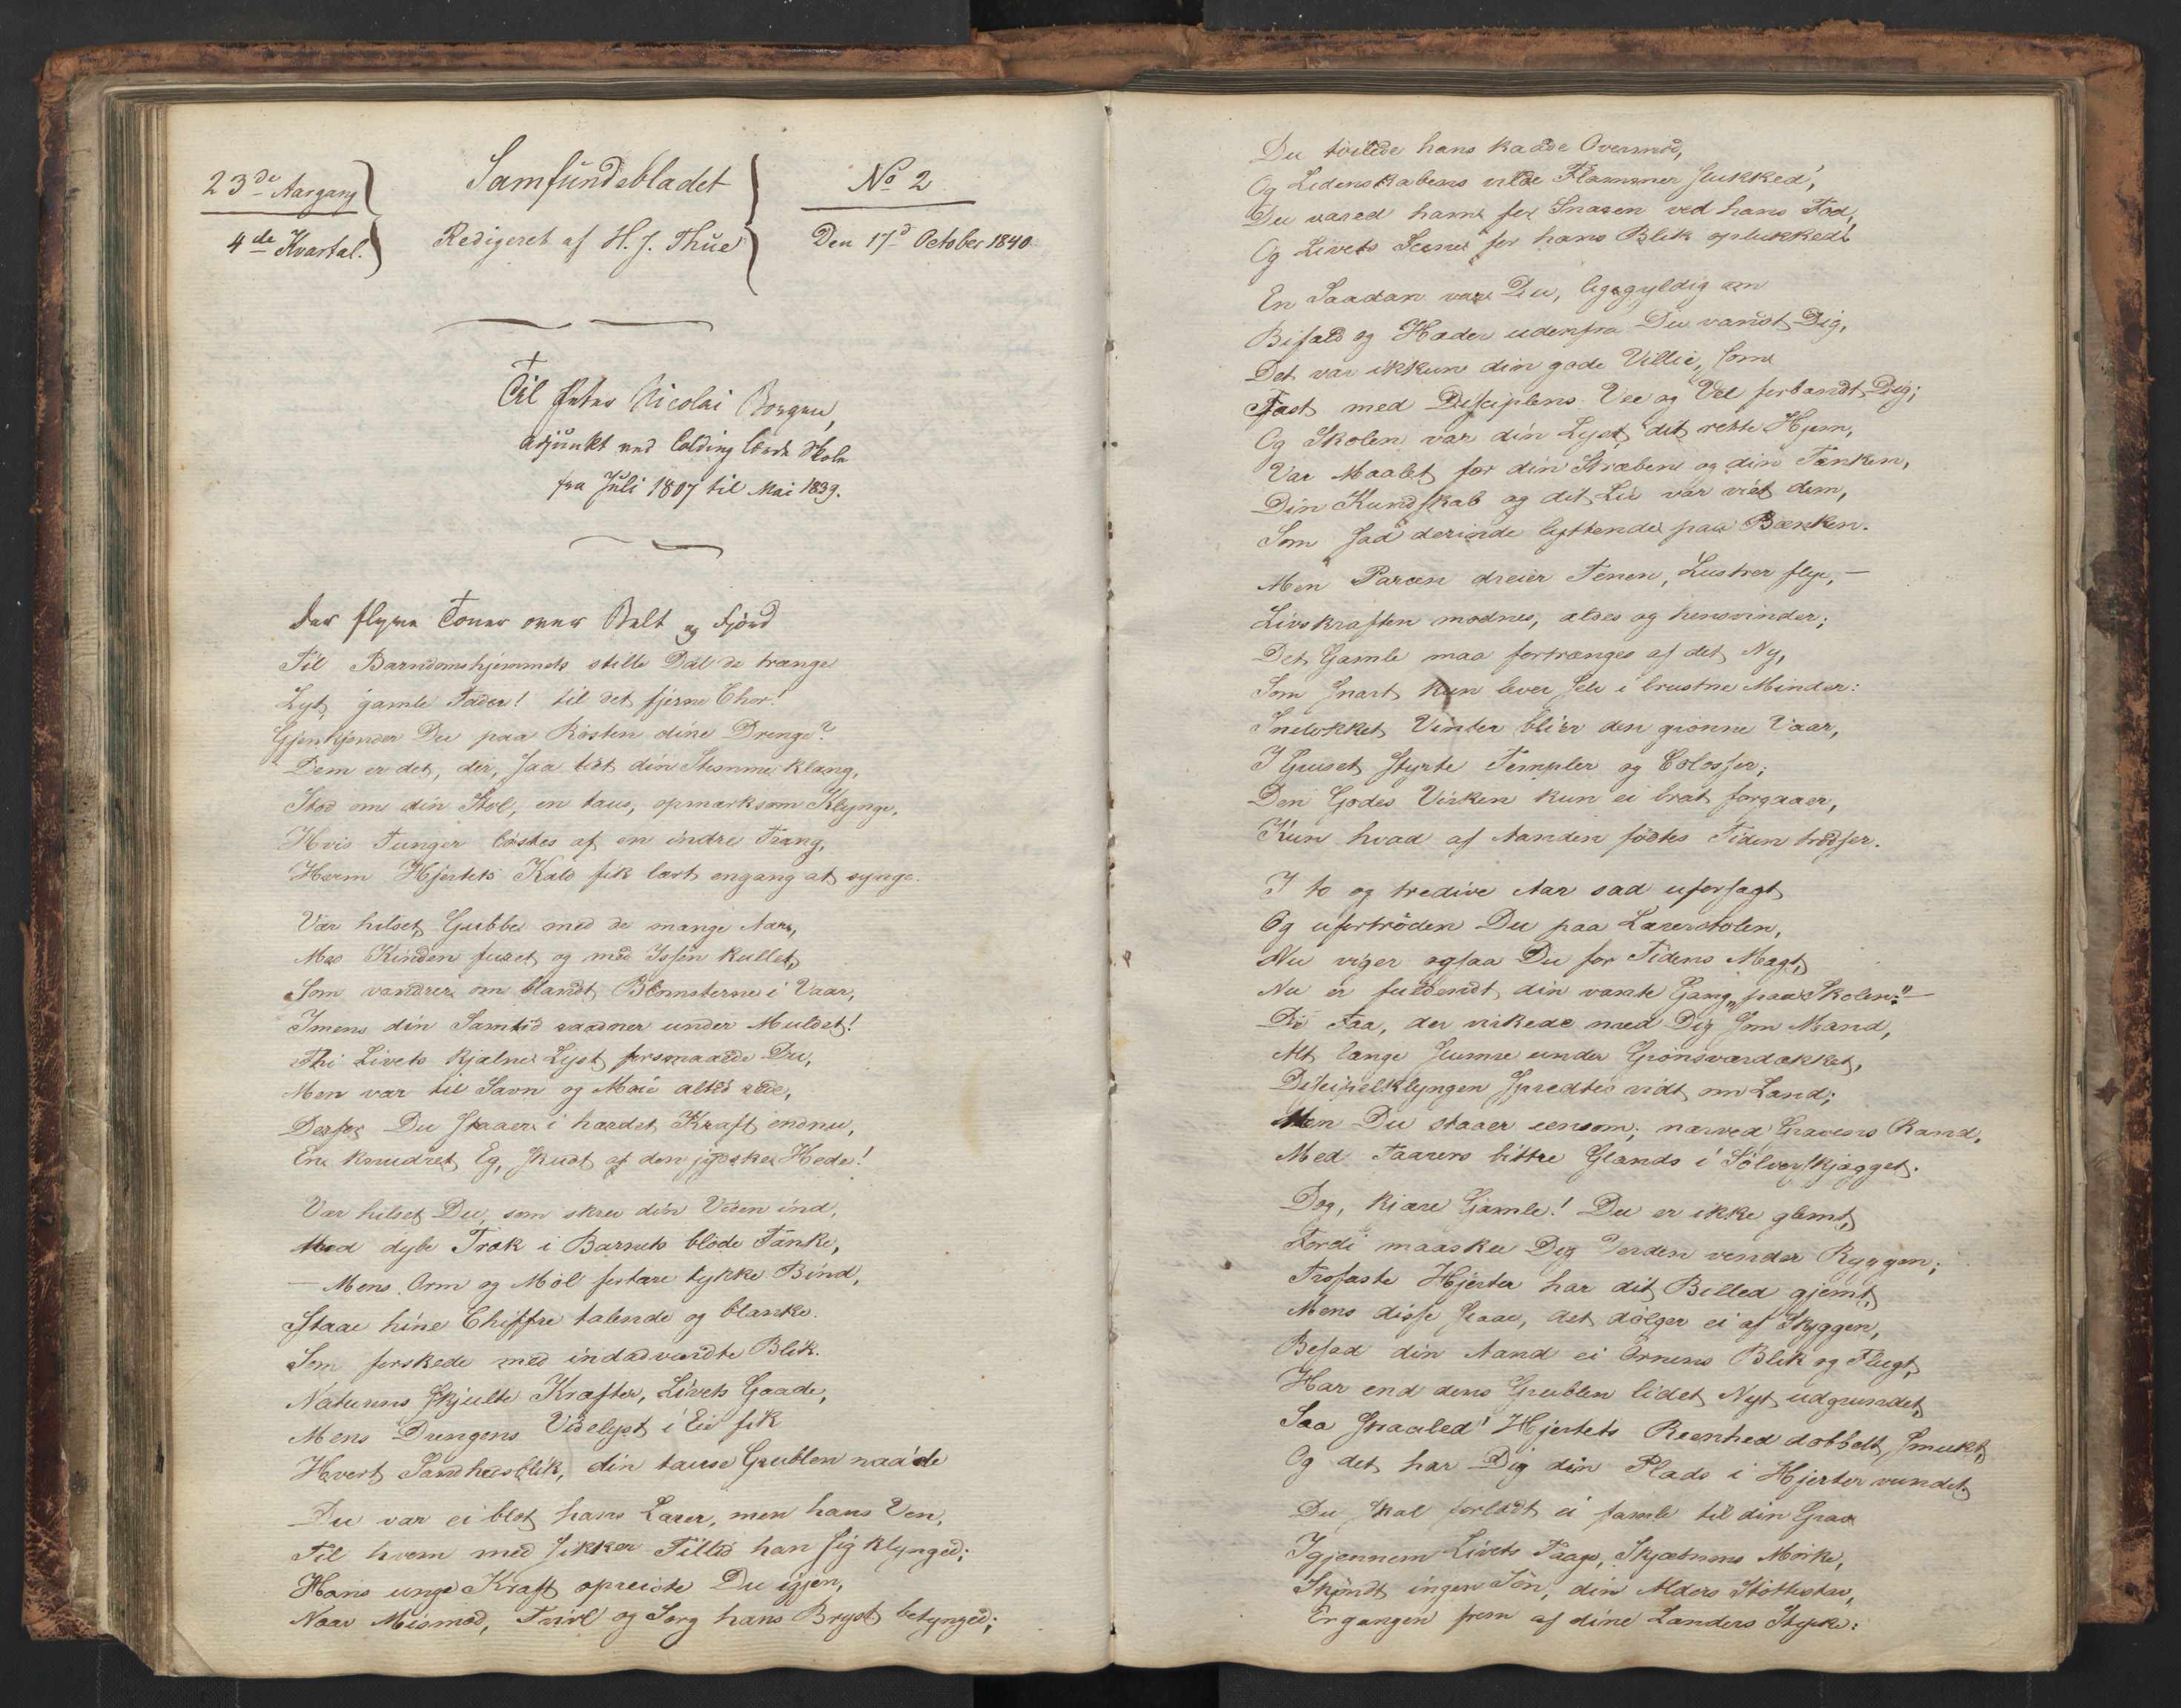 23de Aargang
4de Kvartal.
Samfundsbladet
Redigeret af H. J. Thue
No 2
Den 17d October 1840
Til Peter Nicolai Borgen,
Adjunkt ved Colding lærde Skole
fra Juli 1807 til Mai 1839.
Der flyve Toner over Belt og Fjord
Til Barndomshjemmets stille Dal de trænge
Lyt, gamle Fader! til det fjerne Chor!
Gjenkjender Du paa Røsten dine Drenge?
Dem er det, der, saa tidt din Stemme klang,
Stod om din Stol, en taus, opmærksom Klynge,
Hvis Tunger løstes af en indre Trang,
Hvem Hjertets Kald fik lært engang at synge.
Vær hilset, Gubbe med de mange Aar,
Med Kinden furet og med Issen kullet,
Som vandrer om blandt Blomsterne i Vaar,
Imens din Samtid raadner under Muldet!
Thi Livets kjælne Lyst forsmaaede Du,
Men var til Savn og Møie altid rede,
Derfor Du staaer i hærdet Kraft endnu,
En knudret Eg, skudt af den jydske Hede!
Vær hilset Du, som skrev din Viden ind,
Med dybe Træk i Barnets bløde Tanke,
– Mens Orm og Møl fortære tykke Bind,
Staae hine Chiffre talende og blanke.
Som forskede med indadvendte Blik.
Naturens skjulte Kræfter, Livets Gaade,
Mens Drengens Videlyst i Eie fik
Hvert Sandhedsblik, din tause Grublen naaede
Du var ei blot hans Lærer, men hans Ven,
Til hvem med sikker Tillid han sig klynged;
Hans unge Kraft opreiste Du igjen,
Naar Mismod, Tvivl og Sorg hans Bryst betynged;
Du tøilede hans kaade Overmod,
Og Lidenskabens vilde Flammer slukked',
Du vared ham for Snaren ved hans Fod,
Og Livets Scene for hans Blik oplukked'
En Saadan var Du, ligegyldig om
Bifald og Hæder udenfra Du vandt Dig,
Det var ikkun din gode Villie, som
Fast med Disciplens Vee og Vel forbandt Dig;
Og Skolen var din Lyst, dit rette Hjem,
Var Maalet for din Stræben og din Tænken,
Din Kundskab og dit Liv var viet dem,
Som sad derinde lyttende paa Bænken.
Men Parcen dreier Tenen, Lustrer flye, –
Livskraften modnes, ældes og hensvinder;
Det Gamle maa fortrænges af det Ny,
Som snart kun lever selv i brustne Minder:
Snedækket Vinter bliver den grønne Vaar,
I Gruset styrte Templer og Colosser;
Den Godes Virken kun ei brat forgaaer,
Kun hvad af Aanden fødtes Tiden trodser.
I to og tredive Aar sad uforsagt
Og ufortrøden Du paa Lærerstolen,
Nu viger ogsaa Du for Tidens Magt,
Nu er fuldendt din vante Gang „paa Skolen." –
De Faa, der virkede med Dig som Mand,
Alt længe slumre under Grønsværdækket,
Discipelklyngen spredtes vidt om Land;
Men Du staaer eensom; nærved Gravens Rand,
Med Taarens bittre Glands i Sølverskjægget.
Dog, kjære Gamle! Du er ikke glemt,
Fordi maaskee Dig Verden vender Ryggen;
Trofaste Hjerter har dit Billed gjemt,
Mens disse slaae, det dølger ei af Skyggen,
Besad din Aand ei Ørnens Blik og Flugt,
Har end dens Grublen lidet Nyt udgrundet,
Saa straaled' Hjertets Reenhed dobbelt smukt,
Og det har Dig din Plads i Hjerter vundet.
Du skal forladt ei famle til din Grav
Igjennem Livets Taage, Skjæbnens Mørke,
Skjøndt ingen Søn, din Alders Støttestav,
Er gangen frem af dine Lænders Styrke: